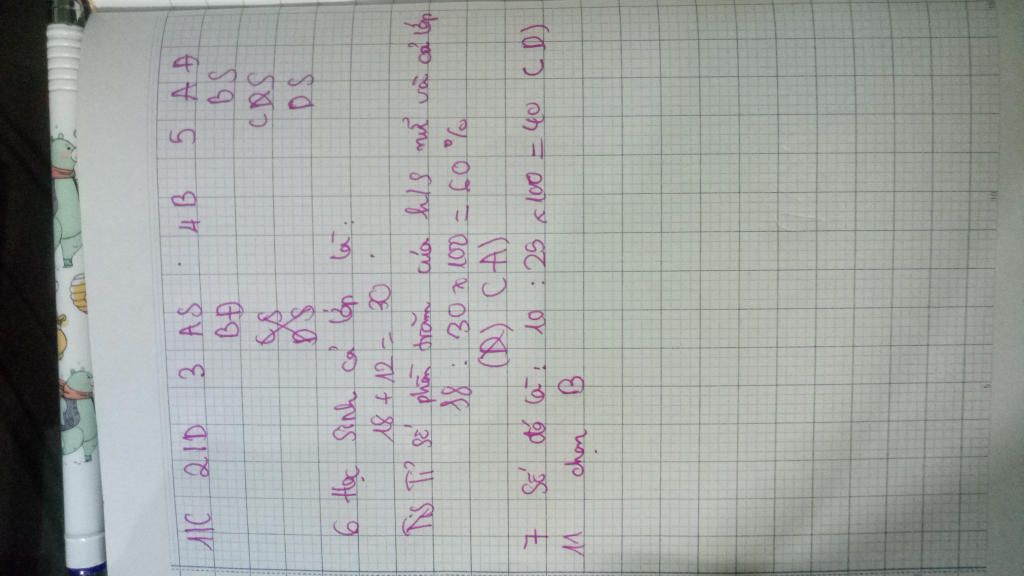 1|C 2|D 3 AS 4B 5 AD
BD BS
CS CS
DS DS
6 Học sinh cả lớp là:
18 + 12 = 30
Tỉ số phần trăm của h/s nữ và cả lớp
18 : 30 x 100 = 60 %
(D) (A)
7 Số đó là: 10 : 25 x 100 = 40 (D)
11 chọn B